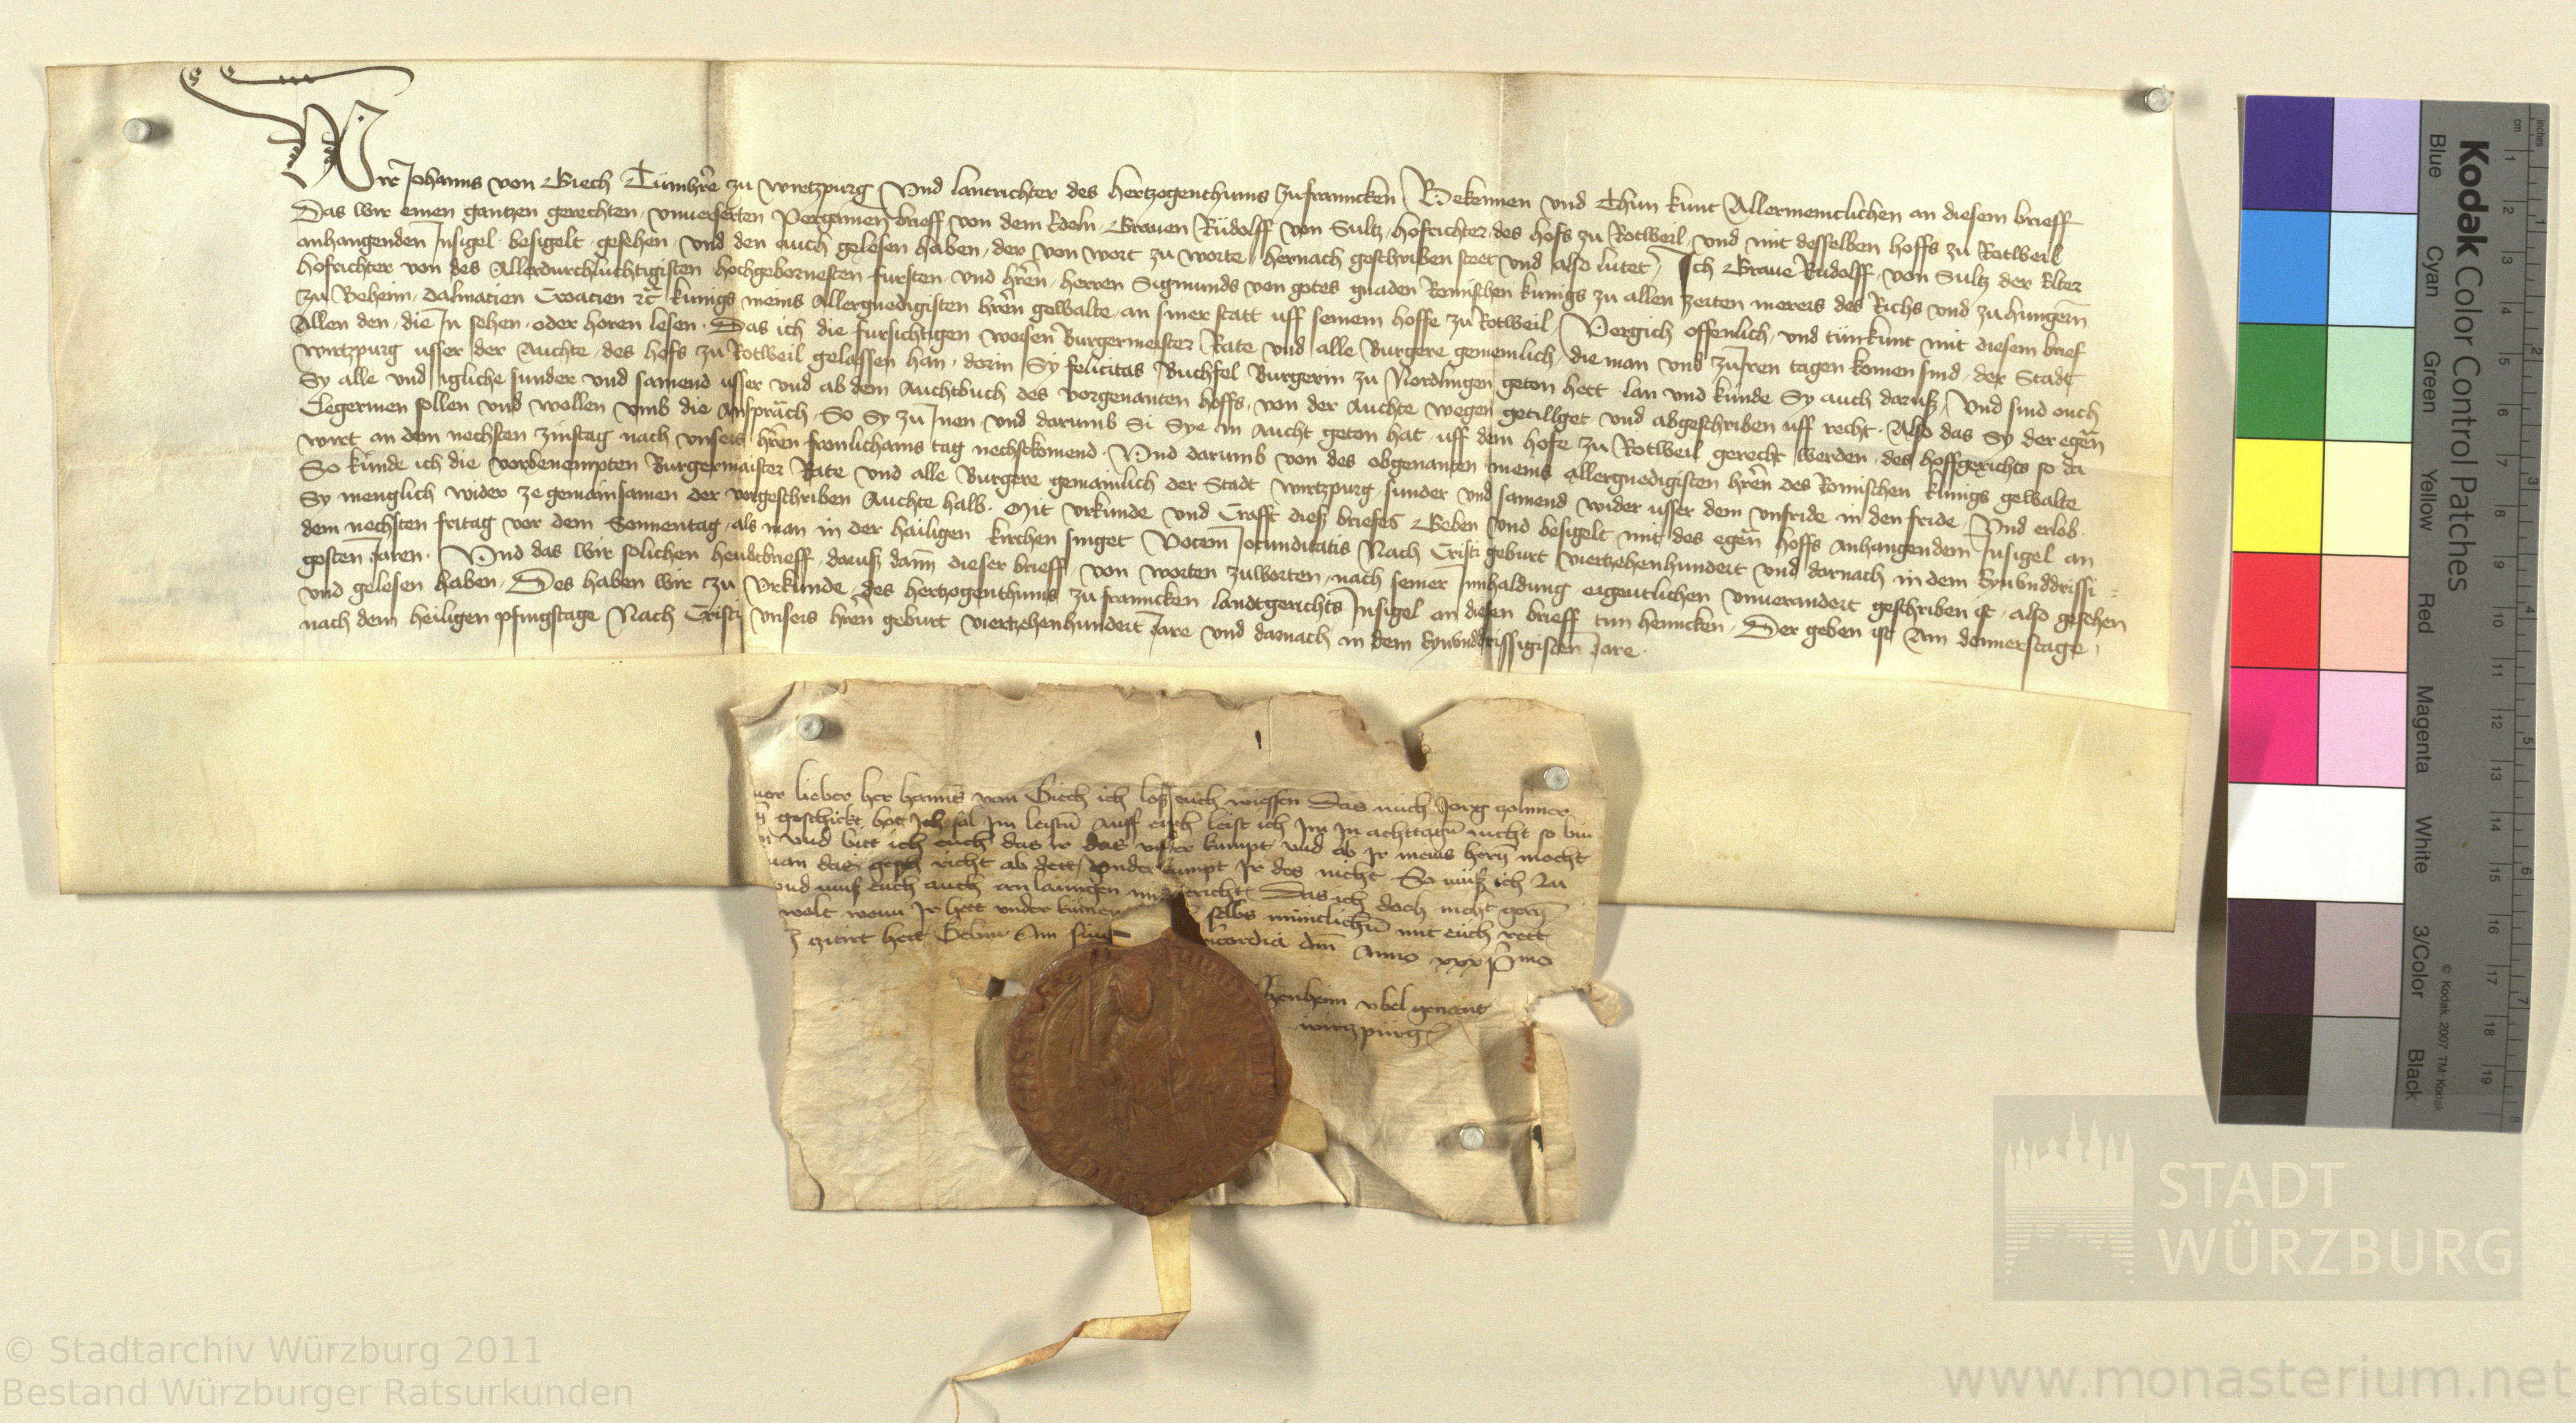 Wir Johanns von Giech Tumhr̄e zu wirtzpurg Vnd lantrichter des hertzogenthums zufrannckeñ Bekennen vnd Thun kunt Allermeniclichen an diesem brieff
Das wir einen gantzen gerechten vnuerserten Pergamen brieff von dem Edeln Grauen Rudolff von Sultz hofrichter des hofs zu Rotweil vnd mit desselben hoffs zu Rotweil
anhangenden Insigel besigelt gesehen vnd den auch gelesen haben der von wort zu worte hernach geschriben steet vnd also lutet Ich Graue Rudolff von Sultz der Elter
hofrichter von des Allerdurchluchtigisten hochgebornesten fursten vnd hr̄en herren Sigmunds von gotes gnaden Romischen kunigs zu allen zeiten merers des Richs vnd zu hungern̄
zu Beheim dalmatien Croatien ꝛc̄ kunigs meins Allergnedigisten hr̄en gewalte an siner statt uff seinem hoffe zu Rotweil Vergich offenlich vnd tun kunt mit diesem brief
Allen den die In sehen oder horen lesen Das ich die fursichtigen weisen Burgermeister Rate vnd alle Burgere gemeinlich die man vnd zu Iren tagen komen sind der Stadt
wirtzpurg usser der Auchte des hofs zu Rotweil gelassen han dorin Sy felicitas Buchsel Burgerin zu Nordlingen geton hett lan vnd kunde Sy auch daruß Vnd sind ouch
Sy alle vnd igliche sunder vnd samend usser vnd ab dem Auchtbuch des vorgenanten hoffs von der Auchte wegen getillget vnd abgeschriben uff recht Also das Sy der egen̄
Clegerinen sollen vnd wollen vmb die Ansprach So Sy zu Inen vnd darumb Si Sye in Aucht geton hat uff dem hofe zu Rotweil gerecht werden des hoffgerichts so da
wirt an dem nechsten zinstag nach vnsers hr̄en fronlichams tag nechstkomend Vnd darumb von des obgenanten meins allergnedigisten hr̄en des Romischen kunigs gewalte
So kunde ich die vorbenempten Burgermaister Rate vnd alle Burgere gemainlich der Stadt wirtzpurg sunder vnd samend wider usser dem vnfride in den fride Vnd erlob
Sy menglich wider ze gemainsamen der vorgeschriben Auchte halb Mit vrkunde vnd Crafft dieß briefes Geben vnd besigelt mit des egen̄ hoffs anhangendem Insigel an
dem nechsten fritag vor dem Sonnentag als man in der hailigen kirchen singet Vocem Jocunditatis Nach Cristi geburt viertzehenhundert vnd darnach in dem Eynvnddrissi=
gosten Jaren Vnd das wir solichen heubtbrieff daruß dann̄ dieser brieff von worten zuworten nach seiner Innhaldung eigentlichen vnuerandert geschriben ist also gesehen
vnd gelesen haben Des haben wir zu vrkunde des hertzogenthums zu frannckeñ landtgerichts Insigel an diesen brieff tun henncken Der geben ist Am donnerstage
nach dem heiligen pfingstage Nach Cristi vnsers hr̄en geburt viertzehenhundert Jare vnd darnach in dem Eynvnddrissigisten Jare
lieber her hanns von Giech ich loß euch wissen Das mich Jorg zolnner
geschickt hot Ich sal Im leistn̄ auff euch leist ich Im In achttagn̄ nicht so bin
vnd bitt ich euch das ir das vnder kumpt vnd ob Ir meins hern̄ mocht
man das richt ab dett vnder kumpt Ir des nicht So muß ich Zu
vnd muß euch auch an langen Im gericht Das ich doch nicht gern̄
wolt wenn Ir hett vnder kumen selbs muntlichn̄ mit euch rett
hett Geben Am dm̄ Anno xxxpͦmo
vbel genant
wirzpurg
Kodak Color Control Patches
Blue Cyan Green Yellow Red Magenta White 3/Color Black
© Kodak, 2007 TM: Kodak
cm 1 2 3 4 5 6 7 8 9 10 11 12 13 14 15 16 17 18 19
inches 1 2 3 4 5 6 7 8
STADT
WÜRZBURG
© Stadtarchiv Würzburg 2011
Bestand Würzburger Ratsurkunden
www.monasterium.net